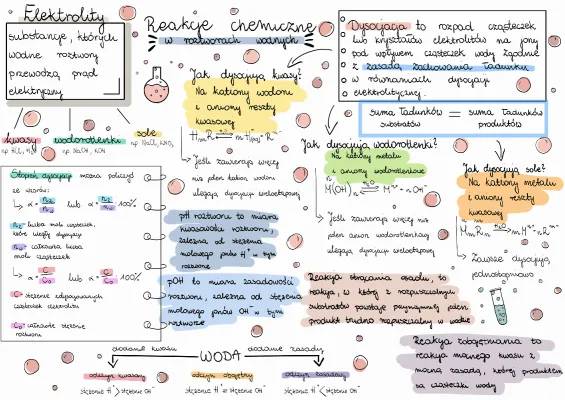 Elektrolity
substancje, których
wodne roztwory
przewodzą prąd
elektryczny
kwasy
wodorotlenki
sole
np. NaOH, KOH
Reakcje chemiczne
w roztworach wodnych
Dysocjacja to rozpad cząsteczek
lub kryształów elektrolitów na jony
pod wpływem cząsteczek wody zgodnie
z zasadą zachowania ładunku
w równaniach dysocjacji
elektrolitycznej.
suma ładunków = suma ładunków
substratów produktów
Jak dysocjują kwasy?
Na kationy wodoru
i aniony reszty
kwasowej
Jeśli zawierają więcej
niż jeden kation wodoru
ulegają dysocjacji wielostopniowej
Jak dysocjują wodorotlenki?
Na kationy metalu
i aniony wodorotlenkowe
Jeśli zawierają więcej niż
jeden anion wodorotlenkowy
ulegają dysocjacji wielostopniowej
Jak dysocjują sole?
Na kationy metalu
i aniony reszty
kwasowej
Zawsze dysocjują
jednostopniowo
Stopień dysocjacji można policzyć
ze wzorów:
lub
100%
liczba moli cząsteczek,
które uległy dysocjacji
całkowita liczba
moli cząsteczek
lub
100%
C - stężenie zdysocjowanych
cząsteczek elektrolitu
C₀ - całkowite stężenie
roztworu
pH roztworu to miara
kwasowości roztworu,
zależna od stężenia
molowego jonów H⁺ w tym
roztworze
pOH to miara zasadowości
roztworu, zależna od stężenia
molowego jonów OH⁻ w tym
roztworze
Reakcja strącania osadu, to
reakcja, w której z rozpuszczalnych
substratów powstaje przynajmniej jeden
produkt trudno rozpuszczalny w wodzie
Reakcja zobojętniania to
reakcja mocnego kwasu z
mocną zasadą, której produktem
są cząsteczki wody
dodanie kwasu
WODA
dodanie zasady
odczyn kwasowy
odczyn obojętny
odczyn zasadowy
stężenie H⁺ > stężenie OH⁻
stężenie H⁺ = stężenie OH⁻
stężenie H⁺ < stężenie OH⁻